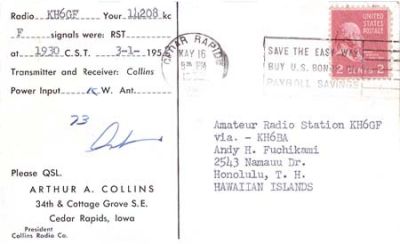 Radio KH6GF Your 14208 kc
F signals were: RST
at 1930 C.S.T. 3-1- 195
Transmitter and Receiver: Collins
Power Input K W. Ant.
73
Please QSL.
ARTHUR A. COLLINS
34th & Cottage Grove S.E.
Cedar Rapids, Iowa
President
Collins Radio Co.
CEDAR RAPIDS
MAY 16
PM
SAVE THE EASY WAY
BUY U.S. BONDS
PAYROLL SAVINGS
UNITED STATES
POSTAGE
2 CENTS 2
Amateur Radio Station KH6GF
via. - KH6BA
Andy H. Fuchikami
2543 Namauu Dr.
Honolulu, T. H.
HAWAIIAN ISLANDS